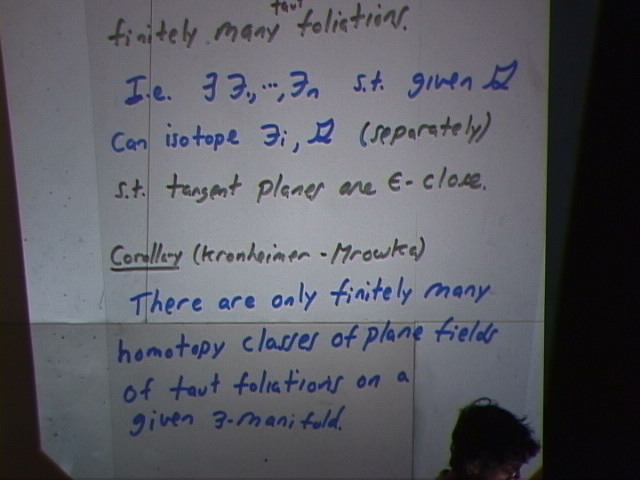 taut
finitely many foliations.
I.e. ∃ ℱ₁, ..., ℱₙ s.t. given
Can isotope ℱᵢ, (separately)
s.t. tangent planes are ε-close.
Corollary (Kronheimer - Mrowka)
There are only finitely many
homotopy classes of plane fields
of taut foliations on a
given 3-manifold.